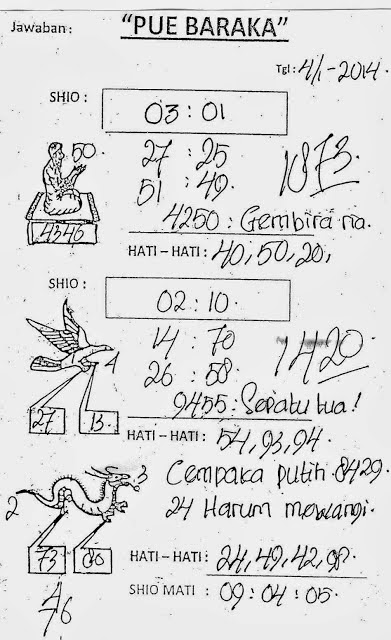 Jawaban :
"PUE BARAKA"
Tgl : 4/1-2014.
SHIO :
03 : 01
50
27 : 25
51 : 49.
1873.
4346
4250 : Gembira ria.
HATI - HATI : 40, 50, 20,
SHIO :
02 : 10.
14 : 70
26 : 58.
1420
4
27 13.
9455 : Sepatu tua!
HATI - HATI : 54, 93, 94.
3 Cempaka putih 8429.
2 24 Harum mewangi.
73 80
HATI - HATI : 24, 49, 42, 98.
SHIO MATI : 09 : 04 : 05.
46